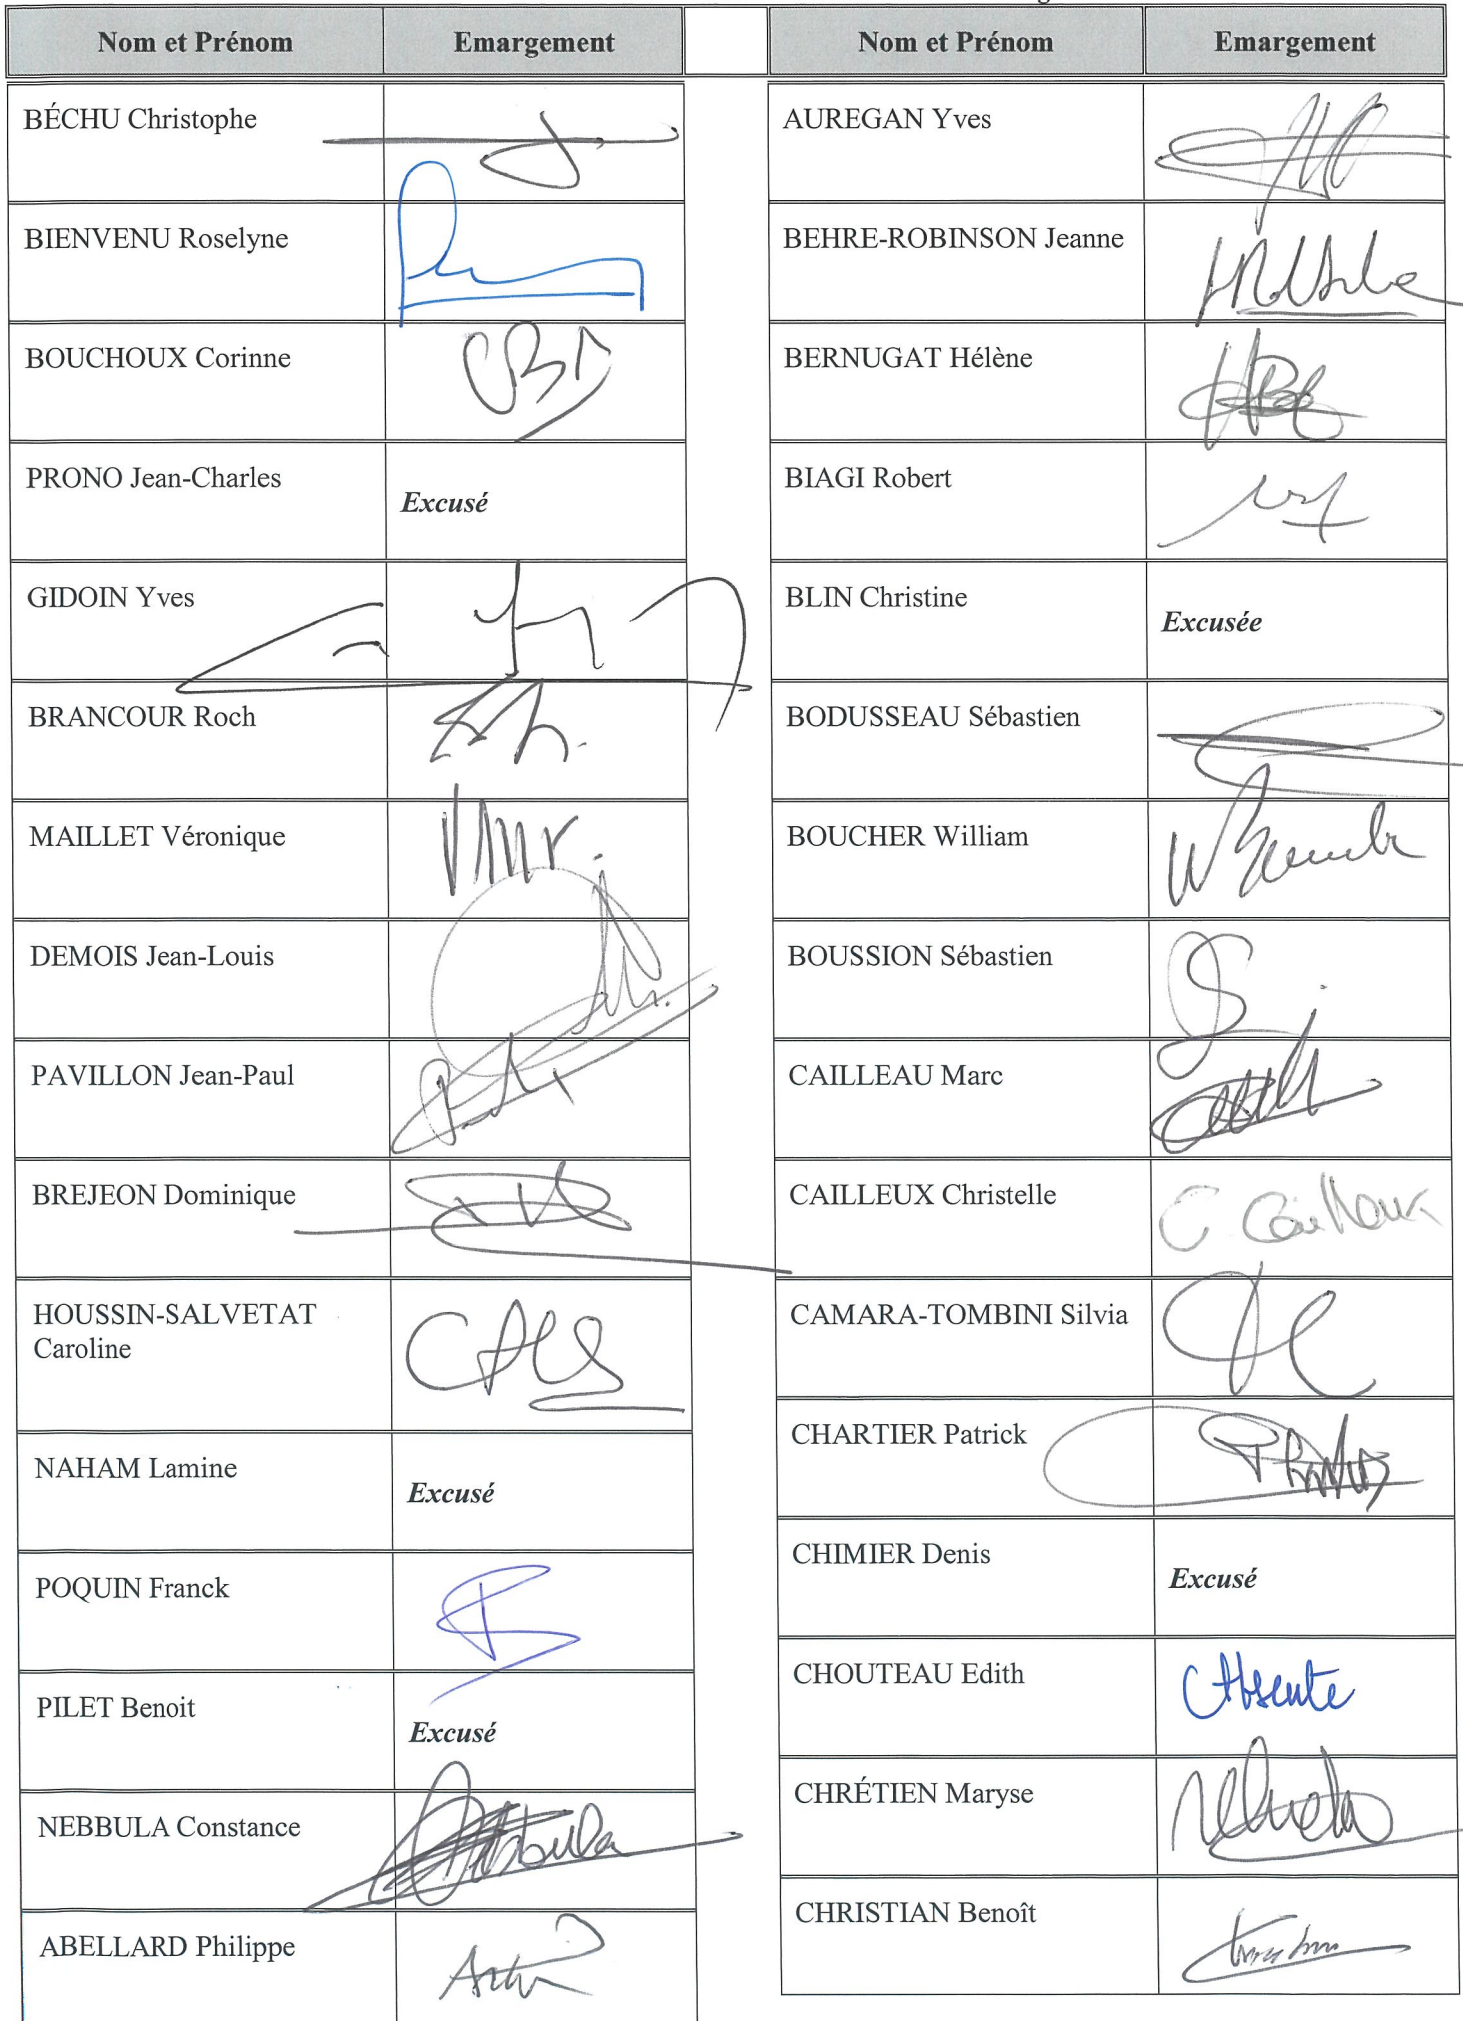 Nom et Prénom Emargement
BÉCHU Christophe
BIENVENU Roselyne
BOUCHOUX Corinne
PRONO Jean-Charles Excusé
GIDOIN Yves
BRANCOUR Roch
MAILLET Véronique
DEMOIS Jean-Louis
PAVILLON Jean-Paul
BREJEON Dominique
HOUSSIN-SALVETAT
Caroline
NAHAM Lamine Excusé
POQUIN Franck
PILET Benoit Excusé
NEBBULA Constance
ABELLARD Philippe
Nom et Prénom Emargement
AUREGAN Yves
BEHRE-ROBINSON Jeanne
BERNUGAT Hélène
BIAGI Robert
BLIN Christine Excusée
BODUSSEAU Sébastien
BOUCHER William
BOUSSION Sébastien
CAILLEAU Marc
CAILLEUX Christelle C Cailleux
CAMARA-TOMBINI Silvia
CHARTIER Patrick
CHIMIER Denis Excusé
CHOUTEAU Edith Absente
CHRÉTIEN Maryse
CHRISTIAN Benoît